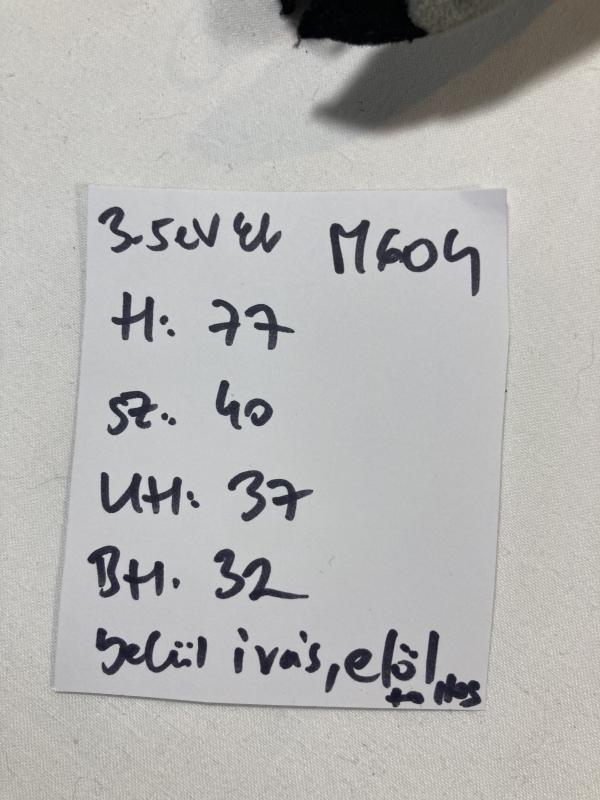 3-5 év M604
H: 77
SZ.: 40
UH: 37
BH. 32
belül írás, elöl
foltos